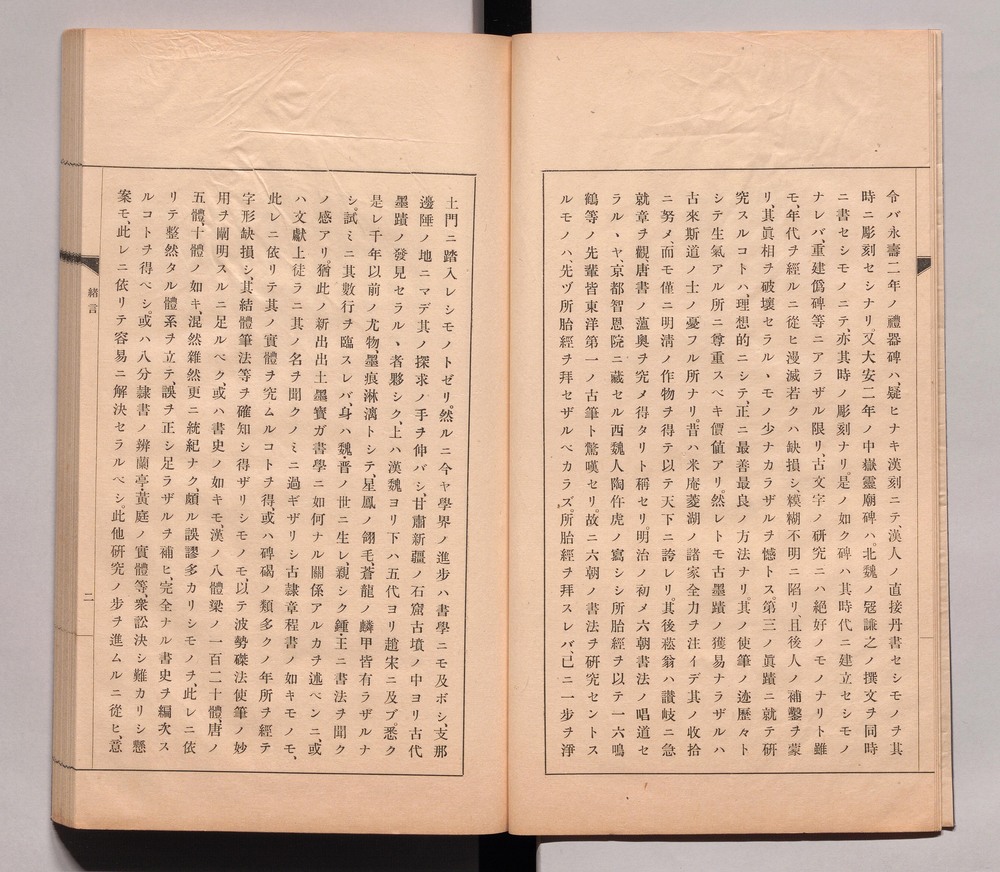 令バ永壽二年ノ禮器碑ハ、疑ヒナキ漢刻ニテ、漢人ノ直接丹書セシモノヲ其
時ニ彫刻セシナリ。又大安二年ノ中嶽靈廟碑ハ、北魏ノ寇謙之ノ撰文ヲ同時
ニ書セシモノニテ、亦其時ノ彫刻ナリ。是ノ如ク碑ハ其時代ニ建立セシモノ
ナレバ、重建僞碑等ニアラザル限リ、古文字ノ研究ニハ絕好ノモノナリト雖
モ、年代ヲ經ルニ從ヒ漫滅若クハ缺損シ、糢糊不明ニ陷リ、且後人ノ補鑿ヲ蒙
リ、其眞相ヲ破壞セラルヽモノ少ナカラザルヲ憾トス。第三ノ眞蹟ニ就テ研
究スルコトハ、理想的ニシテ、正ニ最善最良ノ方法ナリ。其ノ使筆ノ迹歷々ト
シテ生氣アル所ニ尊重スベキ價値アリ。然レトモ古墨蹟ノ獲易ナラザルハ
古來斯道ノ士ノ憂フル所ナリ。昔ハ米庵菱湖ノ諸家全力ヲ注イデ其ノ收拾
ニ努メ、而モ僅ニ明清ノ作物ヲ得テ以テ天下ニ誇レリ。其後菘翁ハ讚岐ニ急
就章ヲ觀、唐書ノ薀奧ヲ究メ得タリト稱セリ。明治ノ初メ六朝書法ノ唱道セ
ラルヽヤ、京都智恩院ニ藏セル西魏人陶仵虎ノ寫シシ所胎經ヲ以テ一六鳴
鶴等ノ先輩皆東洋第一ノ古筆ト驚嘆セリ。故ニ六朝ノ書法ヲ研究セントス
ルモノハ、先ヅ所胎經ヲ拜セザルベカラズ。所胎經ヲ拜スレバ、已ニ一步ヲ淨
土門ニ踏入レシモノトゼリ。然ルニ今ヤ學界ノ進步ハ書學ニモ及ボシ、支那
邊陲ノ地ニマデ其ノ探求ノ手ヲ伸バシ、甘肅新疆ノ石窟古墳ノ中ヨリ古代
墨蹟ノ發見セラルヽ者夥シク、上ハ漢魏ヨリ下ハ五代ヨリ趙宋ニ及ブ。悉ク
是レ千年以前ノ尤物墨痕淋漓トシテ、星鳳ノ翎毛、蒼龍ノ麟甲皆有ラザルナ
シ。試ミニ其數行ヲ臨スレバ、身ハ魏・晋ノ世ニ生レ、親シク鍾王ニ書法ヲ聞ク
ノ感アリ。猶此ノ新出出土墨寶ガ書學ニ如何ナル關係アルカヲ述ベンニ、或
ハ文獻上徒ラニ其ノ名ヲ聞クノミニ過ギザリシ古隷章程書ノ如キモノモ、
此レニ依リテ其ノ實體ヲ究ムルコトヲ得、或ハ碑碣ノ類多クノ年所ヲ經テ
字形缺損シ、其結體筆法等ヲ確知シ得ザリシモノモ、以テ波勢磔法使筆ノ妙
用ヲ闡明スルニ足ルベク、或ハ書史ノ如キモ、漢ノ八體梁ノ一百二十體、唐ノ
五體、十體ノ如キ、混然雜然更ニ統紀ナク、頗ル誤謬多カリシモノヲ、此レニ依
リテ整然タル體系ヲ立テ、誤ヲ正シ足ラザルヲ補ヒ、完全ナル書史ヲ編次ス
ルコトヲ得ベシ。或ハ八分隷書ノ辨蘭亭・黃庭ノ實體等、衆訟決シ難カリシ懸
案モ、此レニ依リテ容易ニ解決セラルベシ。此他硏究ノ步ヲ進ムルニ從ヒ、意
緒言
二